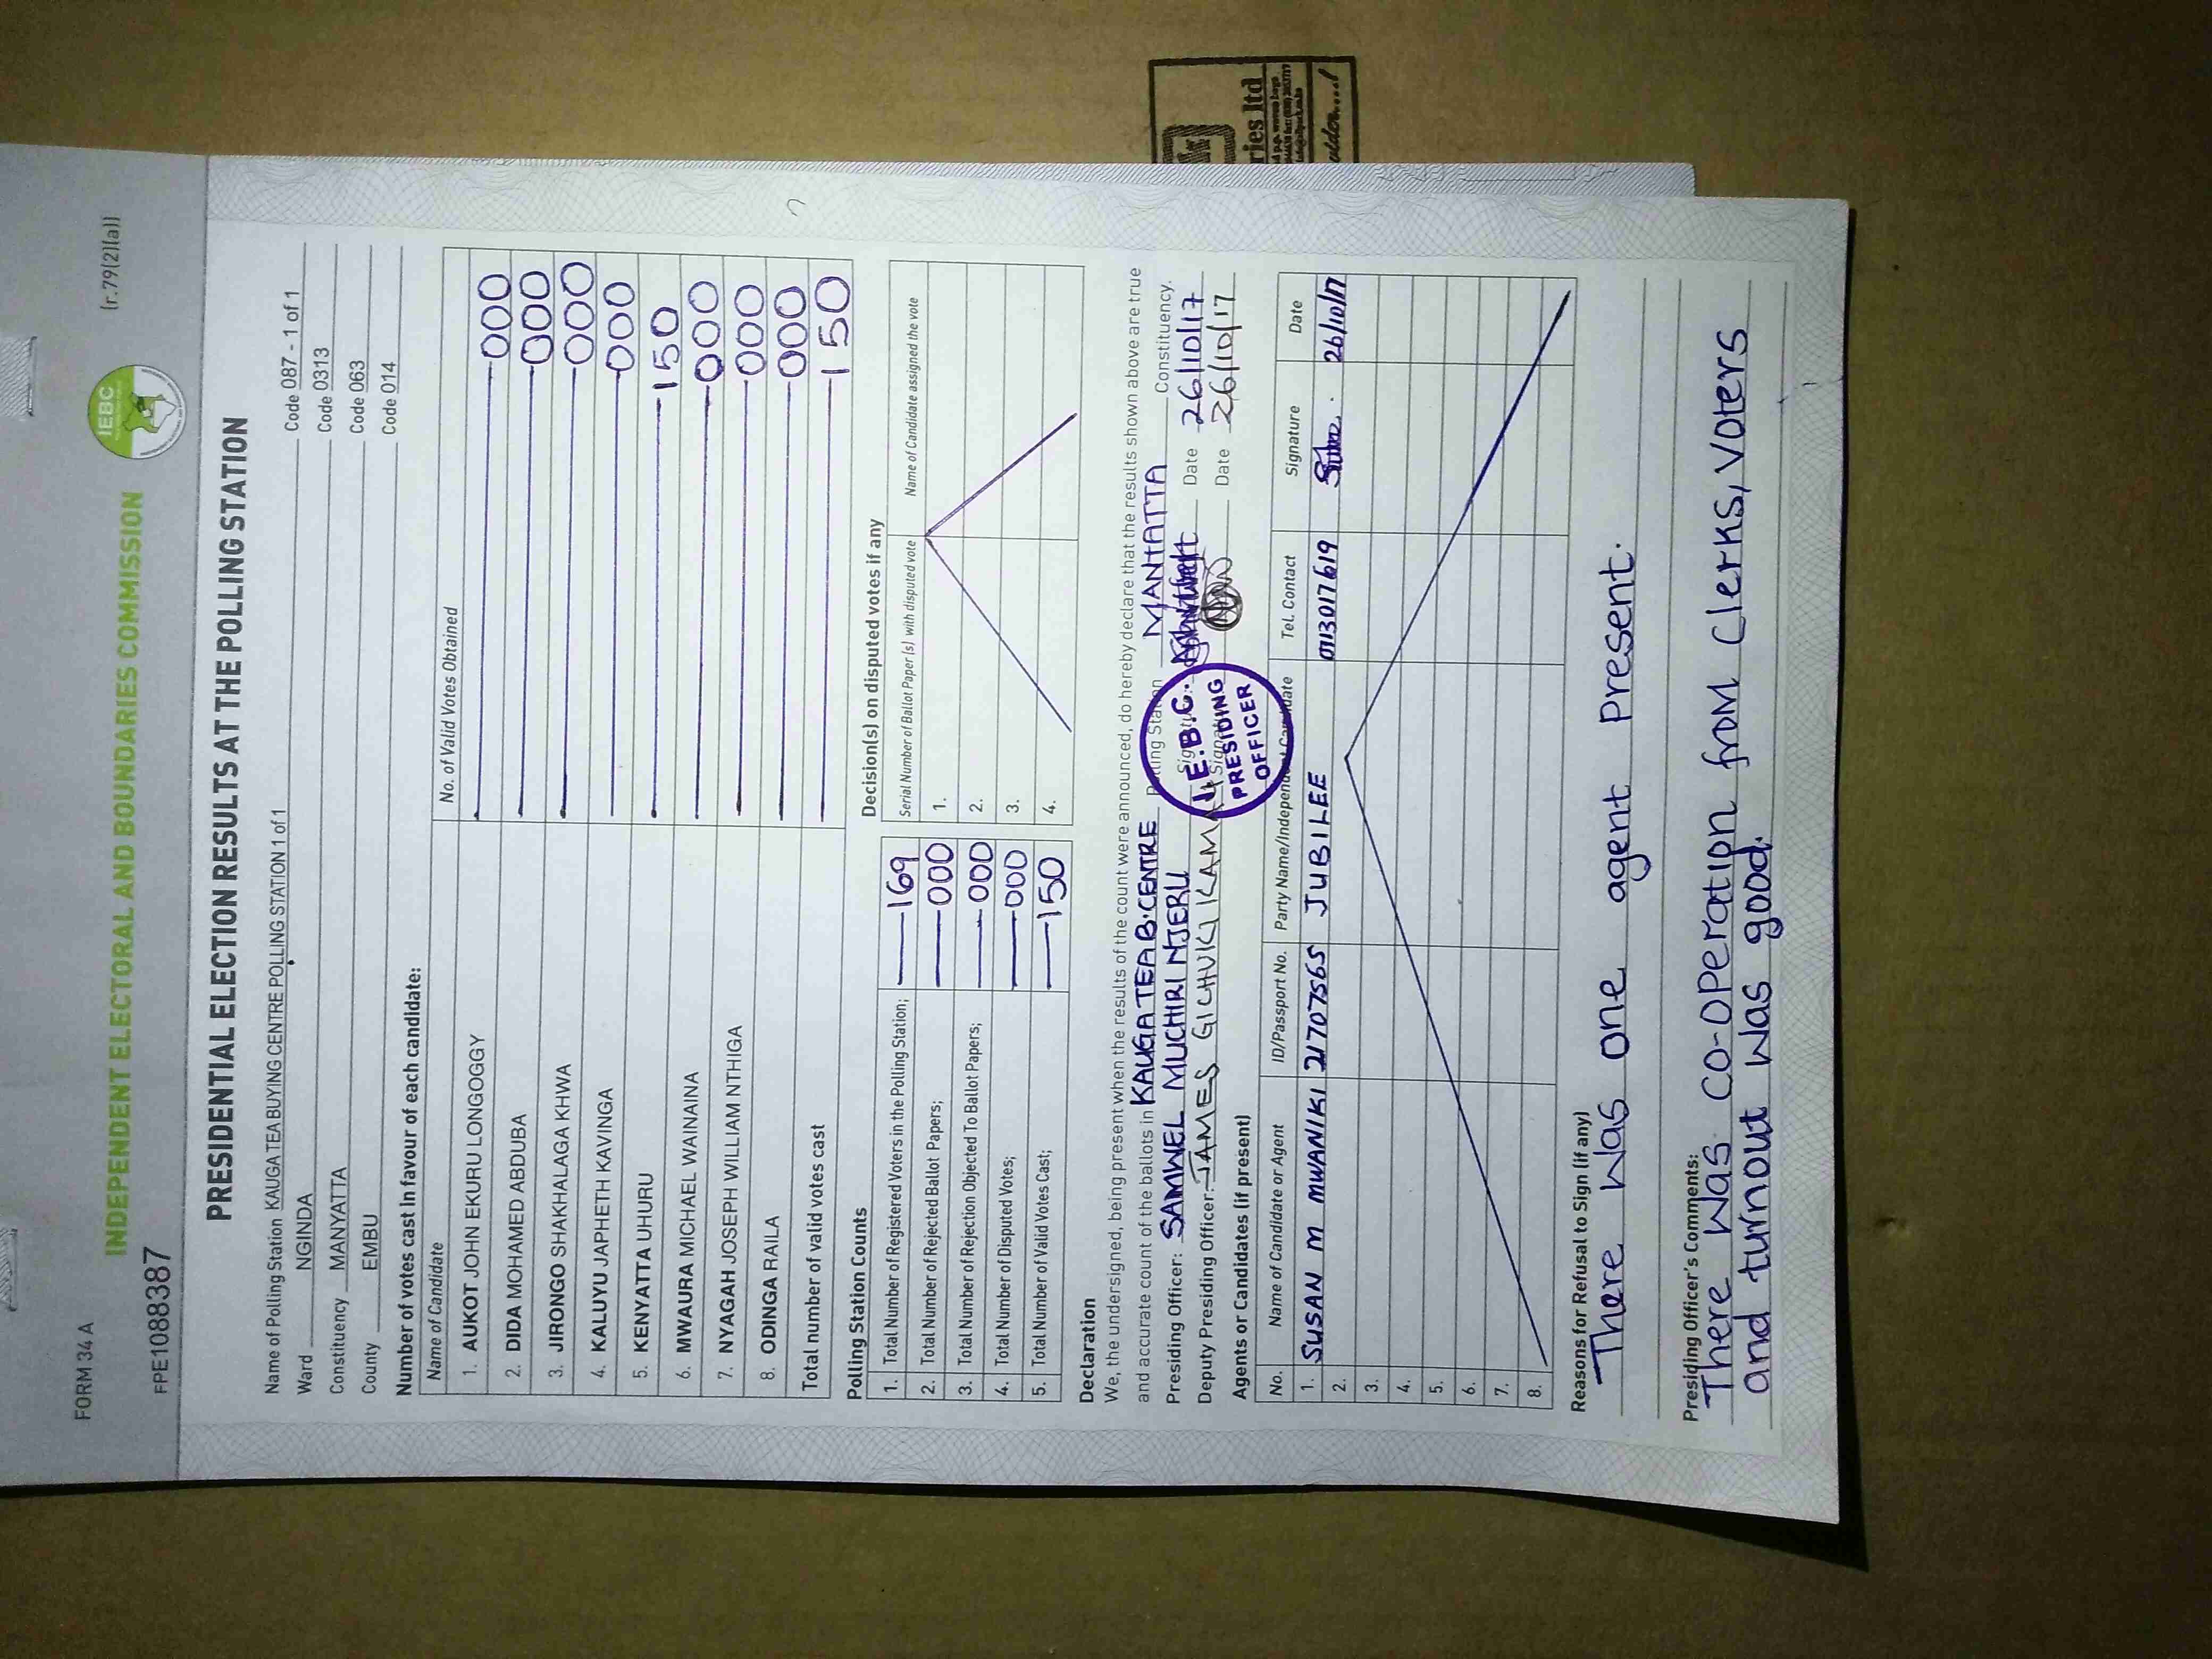 FORM 34 A
(r.79(2)(a))
INDEPENDENT ELECTORAL AND BOUNDARIES COMMISSION
IEBC
FPE1088387
PRESIDENTIAL ELECTION RESULTS AT THE POLLING STATION
Name of Polling Station KAUGA TEA BUYING CENTRE POLLING STATION 1 of 1 Code 087 - 1 of 1
Ward NGINDA Code 0313
Constituency MANYATTA Code 063
County EMBU Code 014
Number of votes cast in favour of each candidate:
Name of Candidate No. of Valid Votes Obtained
1. AUKOT JOHN EKURU LONGOGGY 000
2. DIDA MOHAMED ABDUBA 000
3. JIRONGO SHAKHALAGA KHWA 000
4. KALUYU JAPHETH KAVINGA 000
5. KENYATTA UHURU 150
6. MWAURA MICHAEL WAINAINA 000
7. NYAGAH JOSEPH WILLIAM NTHIGA 000
8. ODINGA RAILA 000
Total number of valid votes cast 150
Polling Station Counts
1. Total Number of Registered Voters in the Polling Station; 169
2. Total Number of Rejected Ballot Papers; 000
3. Total Number of Rejection Objected To Ballot Papers; 000
4. Total Number of Disputed Votes; 000
5. Total Number of Valid Votes Cast; 150
Decision(s) on disputed votes if any
Serial Number of Ballot Paper (s) with disputed vote Name of Candidate assigned the vote
1.
2.
3.
4.
Declaration
We, the undersigned, being present when the results of the count were announced, do hereby declare that the results shown above are true
and accurate count of the ballots in KAUGA TEA B.CENTRE Polling Station MANYATTA Constituency.
Presiding Officer: SAMWEL MUCHIRI NJERU Signature: Date 26/10/17
Deputy Presiding Officer: JAMES GICHUKI KAMAU Signature Date 26/10/17
I.E.B.C.
PRESIDING
OFFICER
Agents or Candidates (if present)
No. Name of Candidate or Agent ID/Passport No. Party Name/Independent Candidate Tel. Contact Signature Date
1. SUSAN M MWANIKI 21707565 JUBILEE 0713017619 26/10/17
2.
3.
4.
5.
6.
7.
8.
Reasons for Refusal to Sign (if any)
There was one agent present.
Presiding Officer's Comments:
There was co-operation from clerks, voters
and turnout was good.
ries ltd